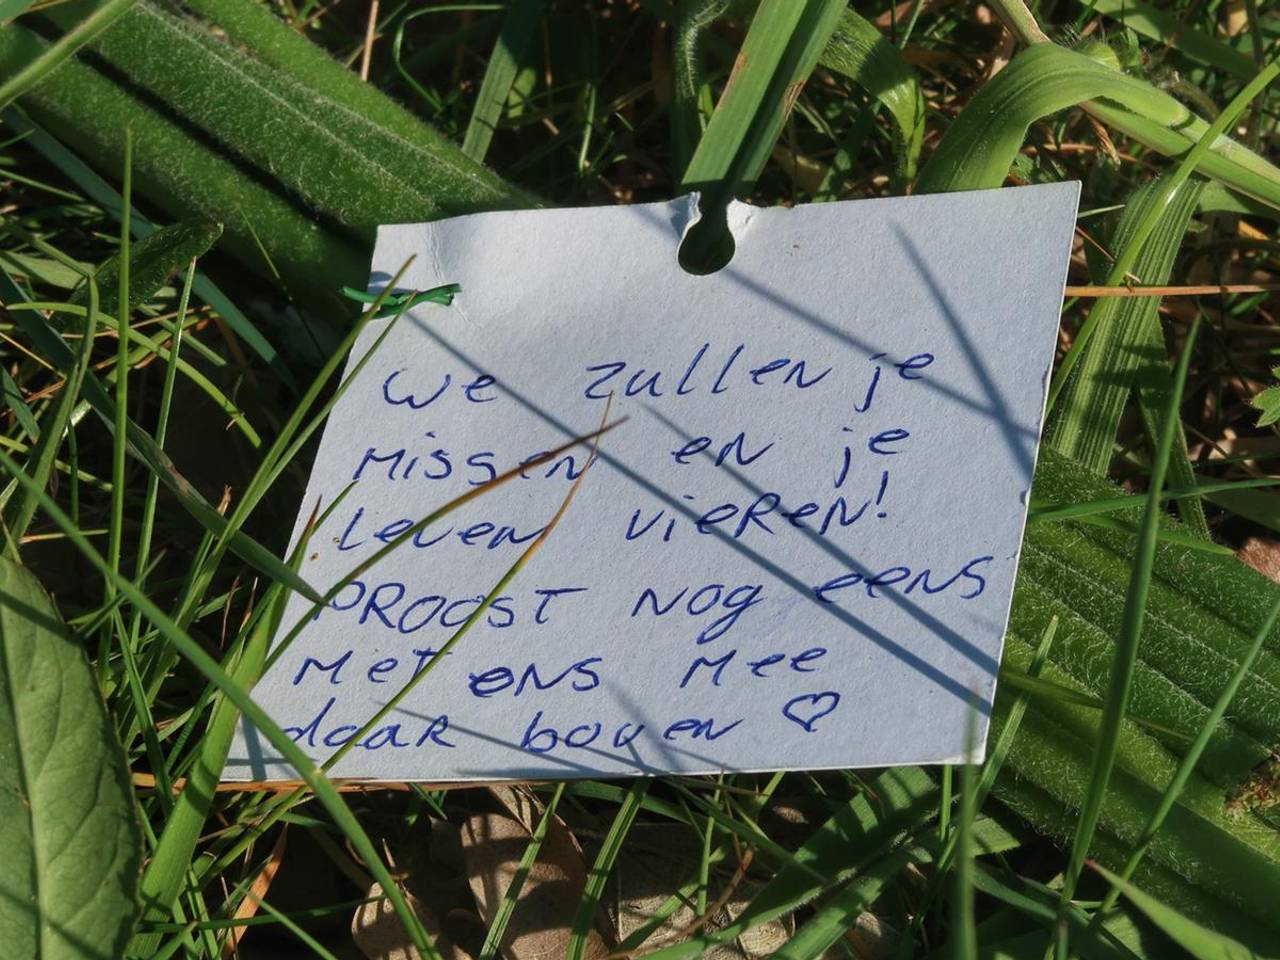 We zullen je
missen en je
leven vieren!
PROOST nog eens
met ons mee
daar boven ♡